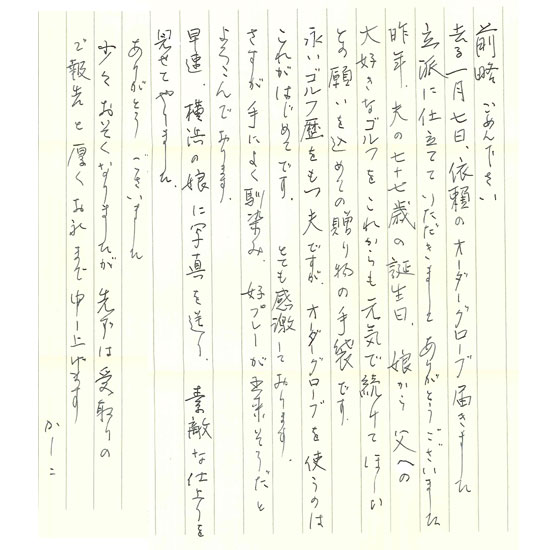 前略 ごめん下さい
去る一月七日、依頼のオーダーグローブ届きました
立派に仕立てていただきまして ありがとうございました
昨年、夫の七十七歳の誕生日、娘から父への
大好きなゴルフをこれからも元気で続けてほしい
との願いを込めての贈り物の手袋です。
永いゴルフ歴をもつ夫ですが、オーダーグローブを使うのは
これがはじめてです。 とても感激しております。
さすが手によく馴染み、好プレーが出来そうだと
よろこんでおります。
早速、横浜の娘に写真を送り、素敵な仕上りを
見せてやりました。
ありがとうございました
少々おそくなりましたが 先ずは受取りの
ご報告と厚くお礼まで申し上げます
かしこ